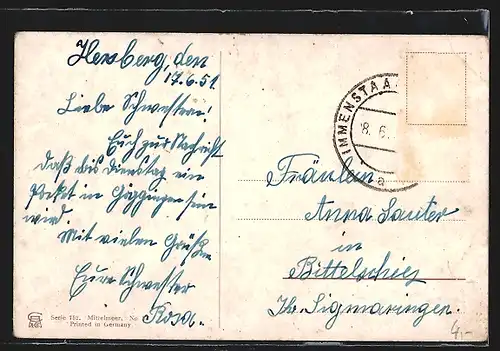 Hersberg, den
17.6.51.
Liebe Schwestern!
Euch zur Nachricht
daß bis Dienstag ein
Paket in Giggingen sein
wird.
Mit vielen Grüßen
Eure Schwester
Rosa.
Serie 112. Mittelmeer. No
Printed in Germany
IMMENSTAA
8.6.
a
Fräulein
Anna Sauter
in
Bittelschies
Kr. Sigmaringen.
4,-